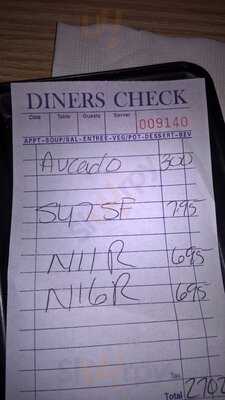 DINERS CHECK
Date Table Guests Server 009140
APPT-SOUP/SAL-ENTREE-VEG/POT-DESSERT-BEV
Avcado 300
S47SF 795
N11R 695
N16R 695
Tax
Total 2702